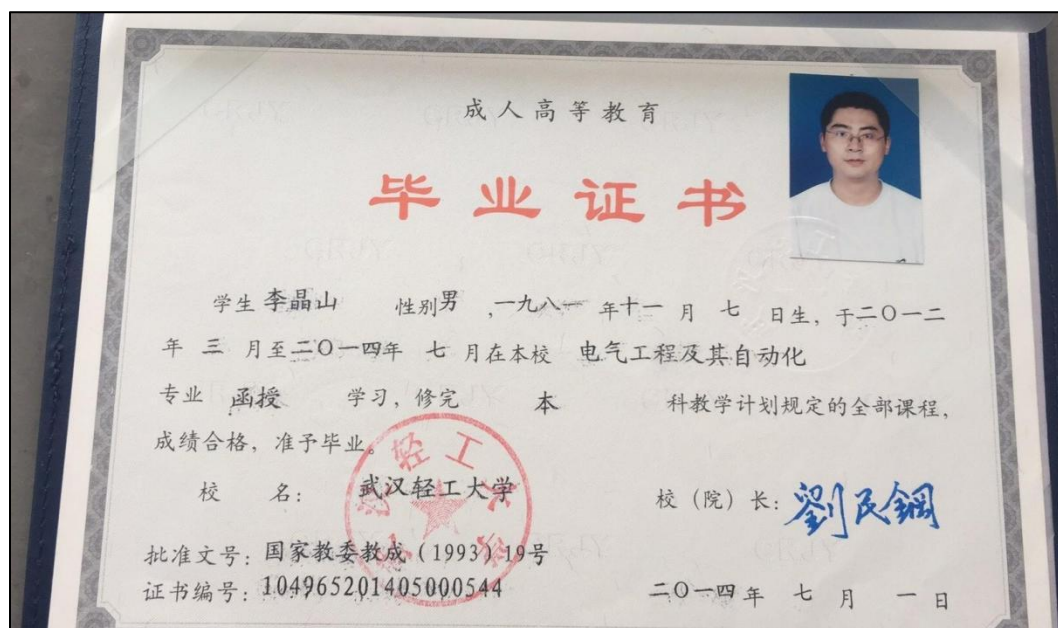 成人高等教育
毕业证书
学生 李晶山 性别 男 ,一九八一 年 十一 月 七 日生, 于二〇一二
年 三 月至二〇一四年 七 月在本校 电气工程及其自动化
专业 函授 学习, 修完 本 科教学计划规定的全部课程,
成绩合格, 准予毕业。
校 名: 武汉轻工大学
校(院)长: 劉民鋼
批准文号: 国家教委教成(1993)19号
证书编号: 104965201405000544
二〇一四年 七 月 一 日